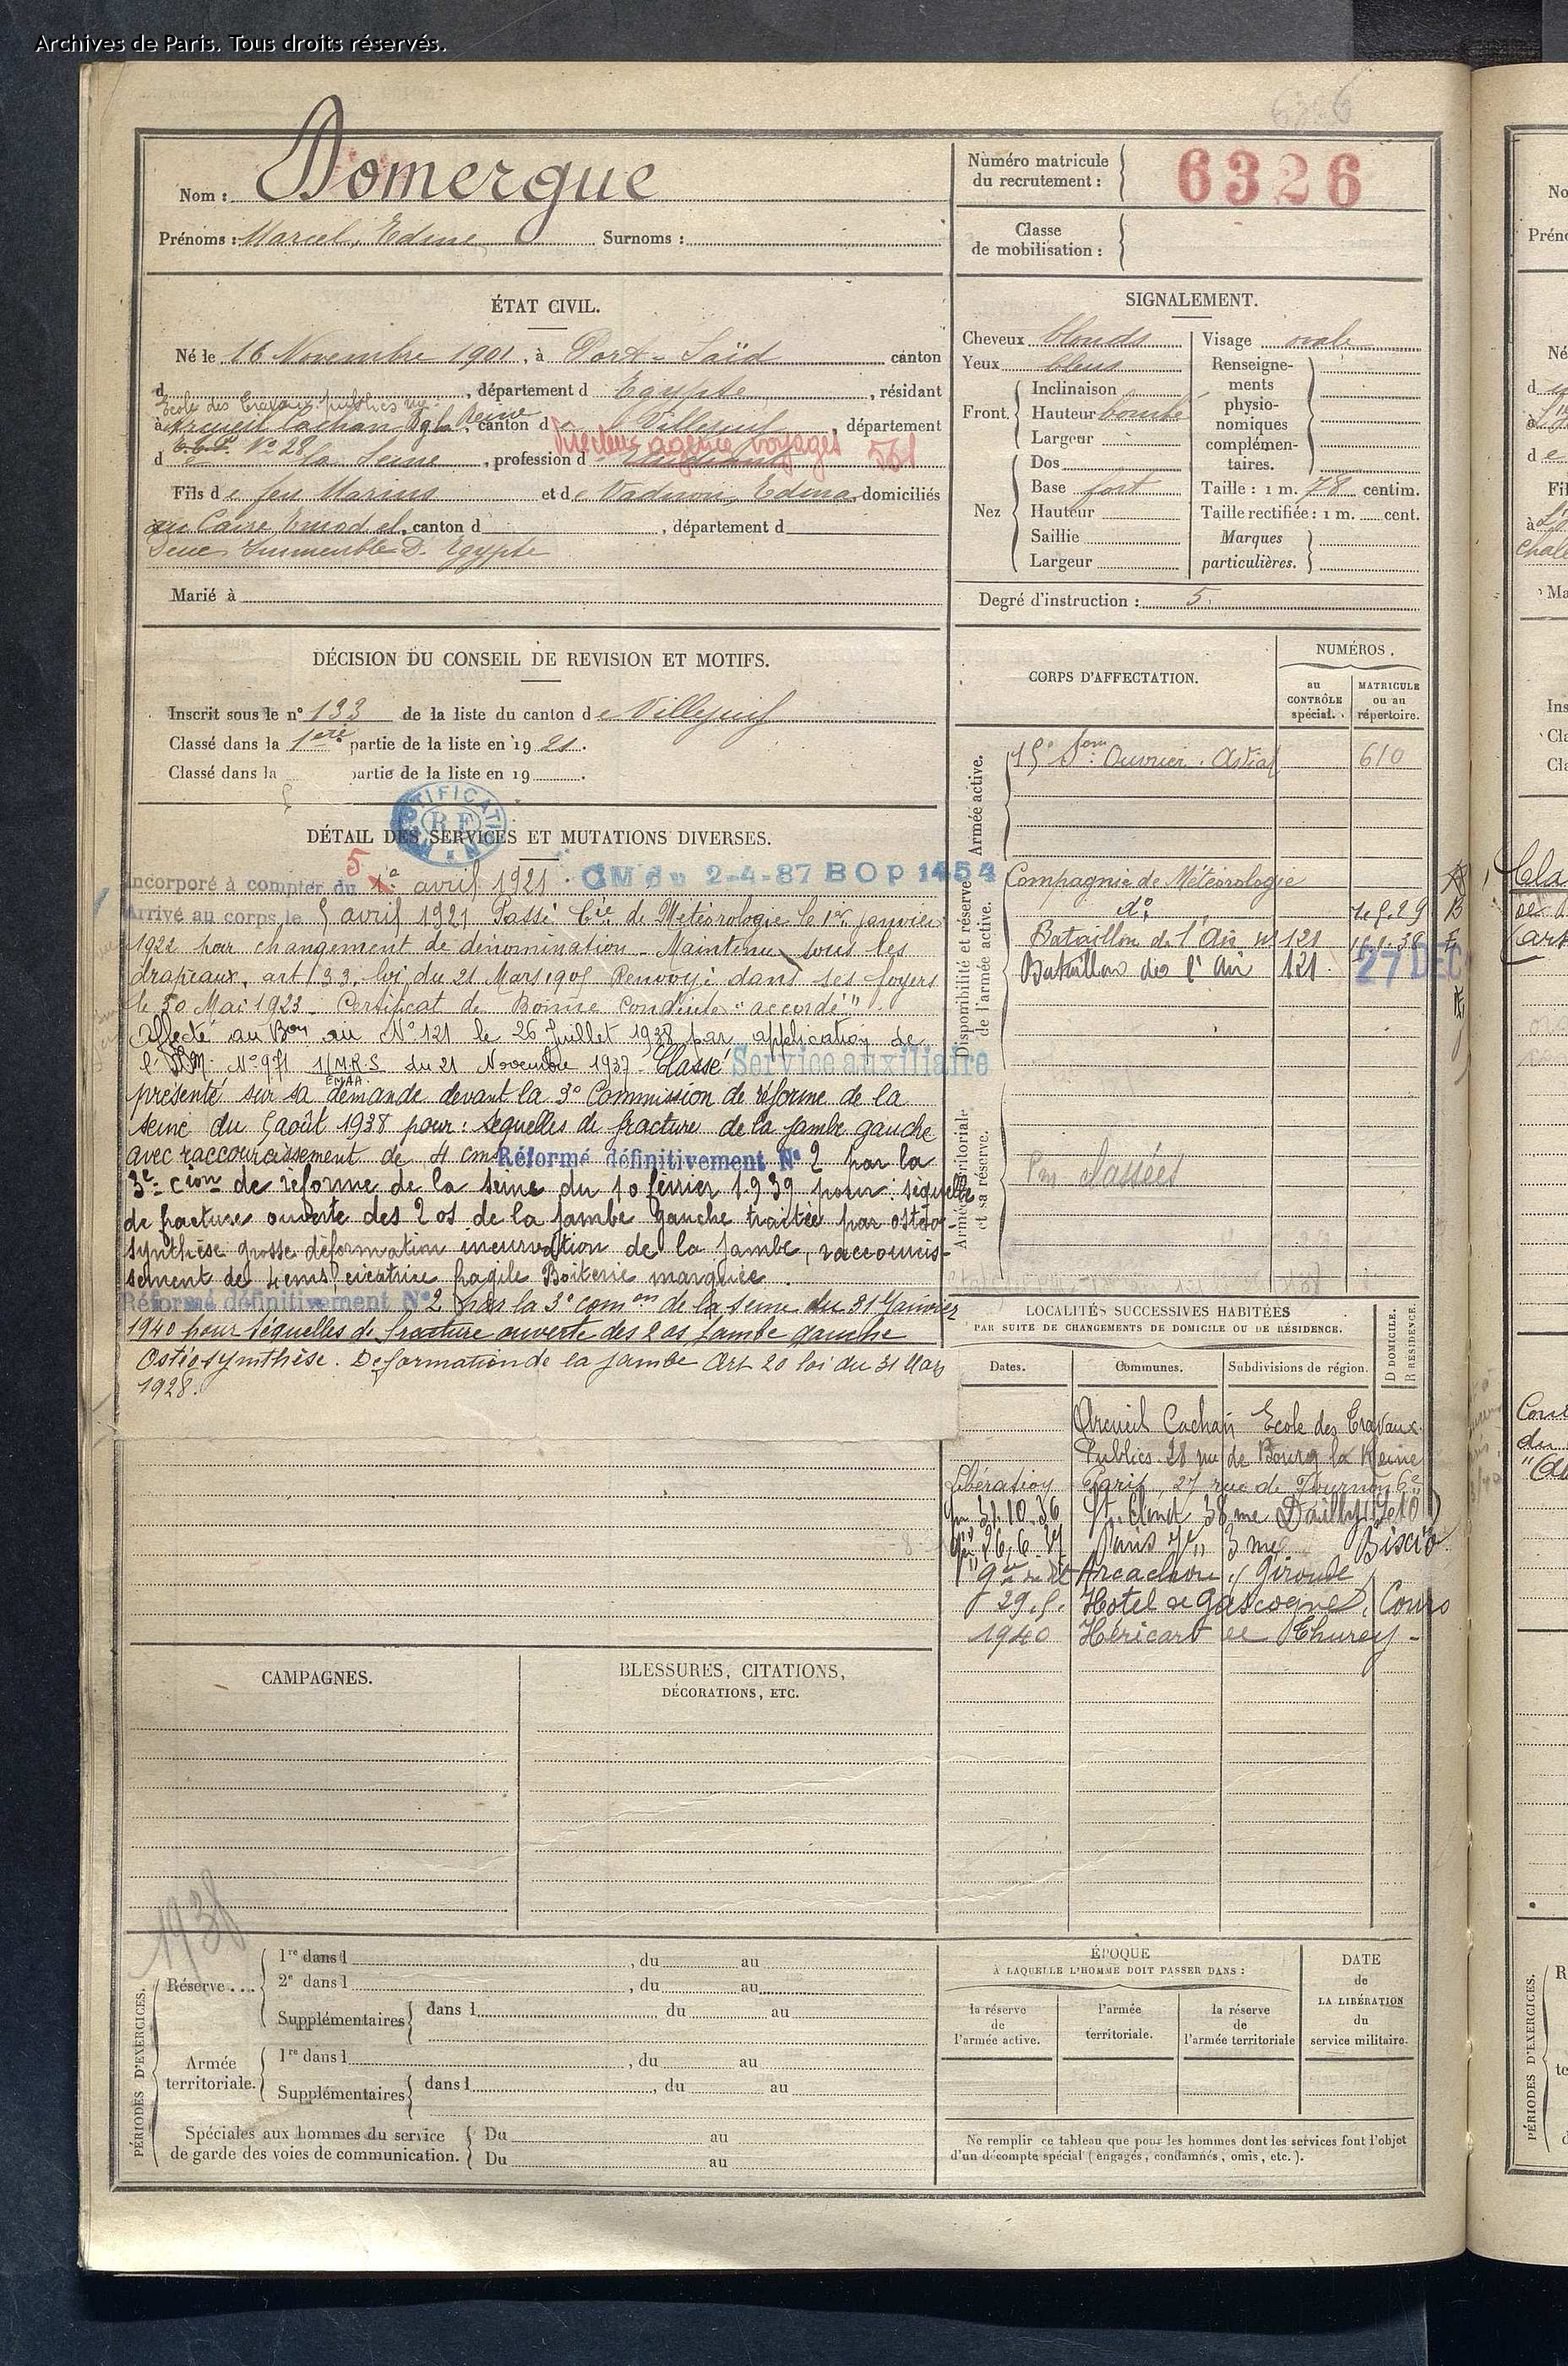 Archives de Paris. Tous droits réservés.
Nom : Domergue
Prénoms : Marcel, Edme Surnoms :
Numéro matricule
du recrutement :
6326
Classe
de mobilisation :
ÉTAT CIVIL.
Né le 16 Novembre 1901, à Port-Saïd canton
d , département d Egypte , résidant
Ecole des Travaux publics rue
à Arcueil Cachan Bg la Reine, canton de Villejuif, département
N° 28
Directeur agence voyages 561
de la Seine, profession d Etudiant
Fils de feu Marius et de Edma, domiciliés
au Caire Emad el, canton d , département d
Dene Immeuble D. Egypte
Marié à
SIGNALEMENT.
Cheveux blonds
Yeux bleus
Front.
Inclinaison
Hauteur bombé
Largeur
Nez
Dos
Base fort
Hauteur
Saillie
Largeur
Visage ovale
Renseigne-
ments
physio-
nomiques
complémen-
taires.
Taille : 1 m. 78 centim.
Taille rectifiée : 1 m. cent.
Marques
particulières.
Degré d'instruction : 5.
DÉCISION DU CONSEIL DE REVISION ET MOTIFS.
Inscrit sous le n° 133 de la liste du canton de Villejuif
Classé dans la 1ère partie de la liste en 1921.
Classé dans la partie de la liste en 19 .
DÉTAIL DES SERVICES ET MUTATIONS DIVERSES.
RF
5
Incorporé à compter du 1er avril 1921. CM du 2-4-87 BOP 1454
Arrivé au corps le 5 avril 1921 Passé Cie de Météorologie le 1er janvier
1922 par changement de dénomination - Maintenu sous les
drapeaux, art 33 loi du 21 Mars 1905 Renvoyé dans ses foyers
le 30 Mai 1923. Certificat de Bonne Conduite "accordé"
Affecté au Bon air N° 121 le 26 Juillet 1938 par application de
l' N° 971 1/M.R.S du 21 Novembre 1937 - Classé Service auxiliaire
EMAA.
présenté sur sa demande devant la 3e Commission de réforme de la
Seine du 5 août 1938 pour : séquelles de fracture de la jambe gauche
avec raccourcissement de 4 cms Réformé définitivement N° 2 par la
3e cion de réforme de la Seine du 10 février 1939 pour : séquelle
de fracture ouverte des 2 os de la jambe gauche traitée par ostéo-
synthèse grosse déformation incurvation de la jambe, raccourcis-
sement de 4 cms cicatrice fragile Boiterie marquée.
Réformé définitivement N° 2 par la 3e comon de la Seine du 31 Janvier
1940 pour séquelles de fracture ouverte des 2 os jambe gauche
Ostéosynthèse. Déformation de la jambe Art 20 loi du 31 Mars
1928.
CORPS D'AFFECTATION.
NUMÉROS.
au
CONTRÔLE
spécial.
MATRICULE
ou au
répertoire.
Armée active.
15e Son Ouvrier. 610
Disponibilité et réserve
de l'armée active.
Compagnie de Météorologie
do
Bataillon de l'Air n° 121
Bataillon de l'Air 121. 27 DEC
Armée territoriale
et sa réserve.
classées
LOCALITÉS SUCCESSIVES HABITÉES
PAR SUITE DE CHANGEMENTS DE DOMICILE OU DE RÉSIDENCE.
Dates.
Communes.
Subdivisions de région.
D DOMICILE.
R RÉSIDENCE.
Arcueil Cachan Ecole des Travaux
Publics 28 rue de Bourg la Reine
Libération Paris, 27 rue de Tournon 6e
31.10.36 St. Cloud 38 rue Dailly (SetO)
26.6.37 Paris 7e, 3 rue Biscio
Arcachon / Gironde
29.5. Hotel de Gascogne, Cours
1940 Héricart de Thurey -
CAMPAGNES.
BLESSURES, CITATIONS,
DÉCORATIONS, ETC.
1938
PÉRIODES D'EXERCICES.
Réserve ...
1re dans l , du au
2e dans l , du au
Supplémentaires dans l du au
Armée
territoriale.
1re dans l , du au
Supplémentaires dans l , du au
Spéciales aux hommes du service
de garde des voies de communication.
Du au
Du au
ÉPOQUE
À LAQUELLE L'HOMME DOIT PASSER DANS :
la réserve
de
l'armée active.
l'armée
territoriale.
la réserve
de
l'armée territoriale
DATE
de
LA LIBÉRATION
du
service militaire.
Ne remplir ce tableau que pour les hommes dont les services font l'objet
d'un décompte spécial (engagés, condamnés, omis, etc.).